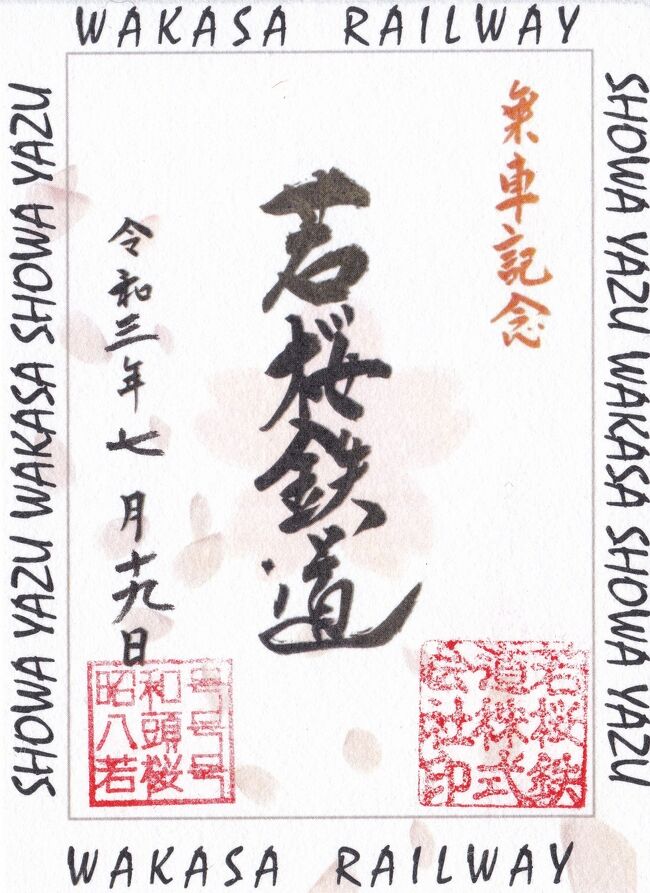 WAKASA RAILWAY
乗車記念
若桜鉄道
令和三年七月十九日
若桜鉄
道株式
会社印
号号号
和頭桜
昭八若
SHOWA YAZU WAKASA SHOWA YAZU
SHOWA YAZU WAKASA SHOWA YAZU
WAKASA RAILWAY